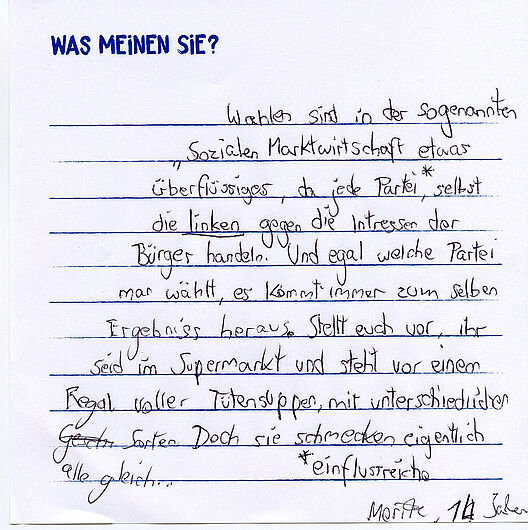 WAS MEINEN SIE?
Wahlen sind in der sogenannten
„Sozialen Marktwirtschaft etwas
überflüssiges, da jede Partei*, selbst
die linken gegen die Intressen der
Bürger handeln. Und egal welche Partei
man wählt, es kommt immer zum selben
Ergebniss heraus. Stellt euch vor, ihr
seid im Supermarkt und steht vor einem
Regal voller Tütensuppen, mit unterschiedlichen
Gesch Sorten. Doch sie schmecken eigentlich
alle gleich...
*einflussreiche
Moritz, 14 Jahre